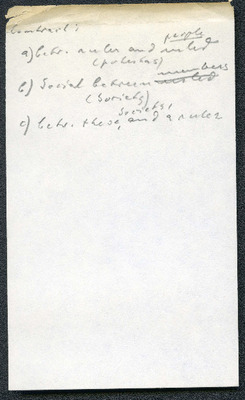 Contracts
people
a) betw. ruler and ruled
(potestas)
members
b) Social between ruled
(Society)
society,
c) betw. these, and a ruler